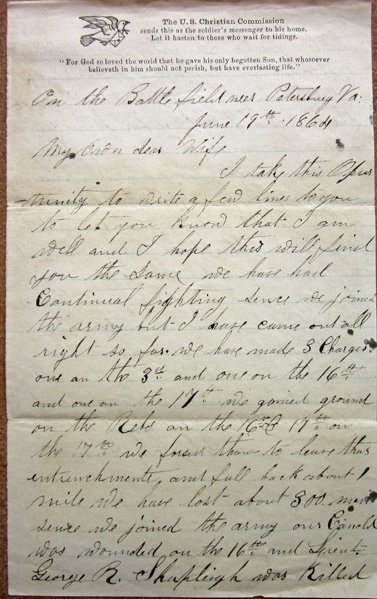 The U. S. Christian Commission
sends this as the soldier's messenger to his home.
Let it hasten to those who wait for tidings.
"For God so loved the world that he gave his only begotten Son, that whosoever
believeth in him should not perish, but have everlasting life."
On the Battle field near Petersburg Va.
June 19th 1864
My own dear Wife
I take this Opur
tunity to write a few lines to you
to let you know that I am
well and I hope this will find
you the same we have had
Continual fighting sence we joined
the army but I have came out all
right so far. we have made 3 Charges
one on the 3d and one on the 16th
and one on the 17th we gained ground
on the Rebs on the 16th & 17th on
the 17th we forced them to leave thar
entrenchments, and fall back about 1
mile we have lost about 300 men
sence we joined the army our
was wounded on the 16th and Lieut
George R. Shapleigh was Killed